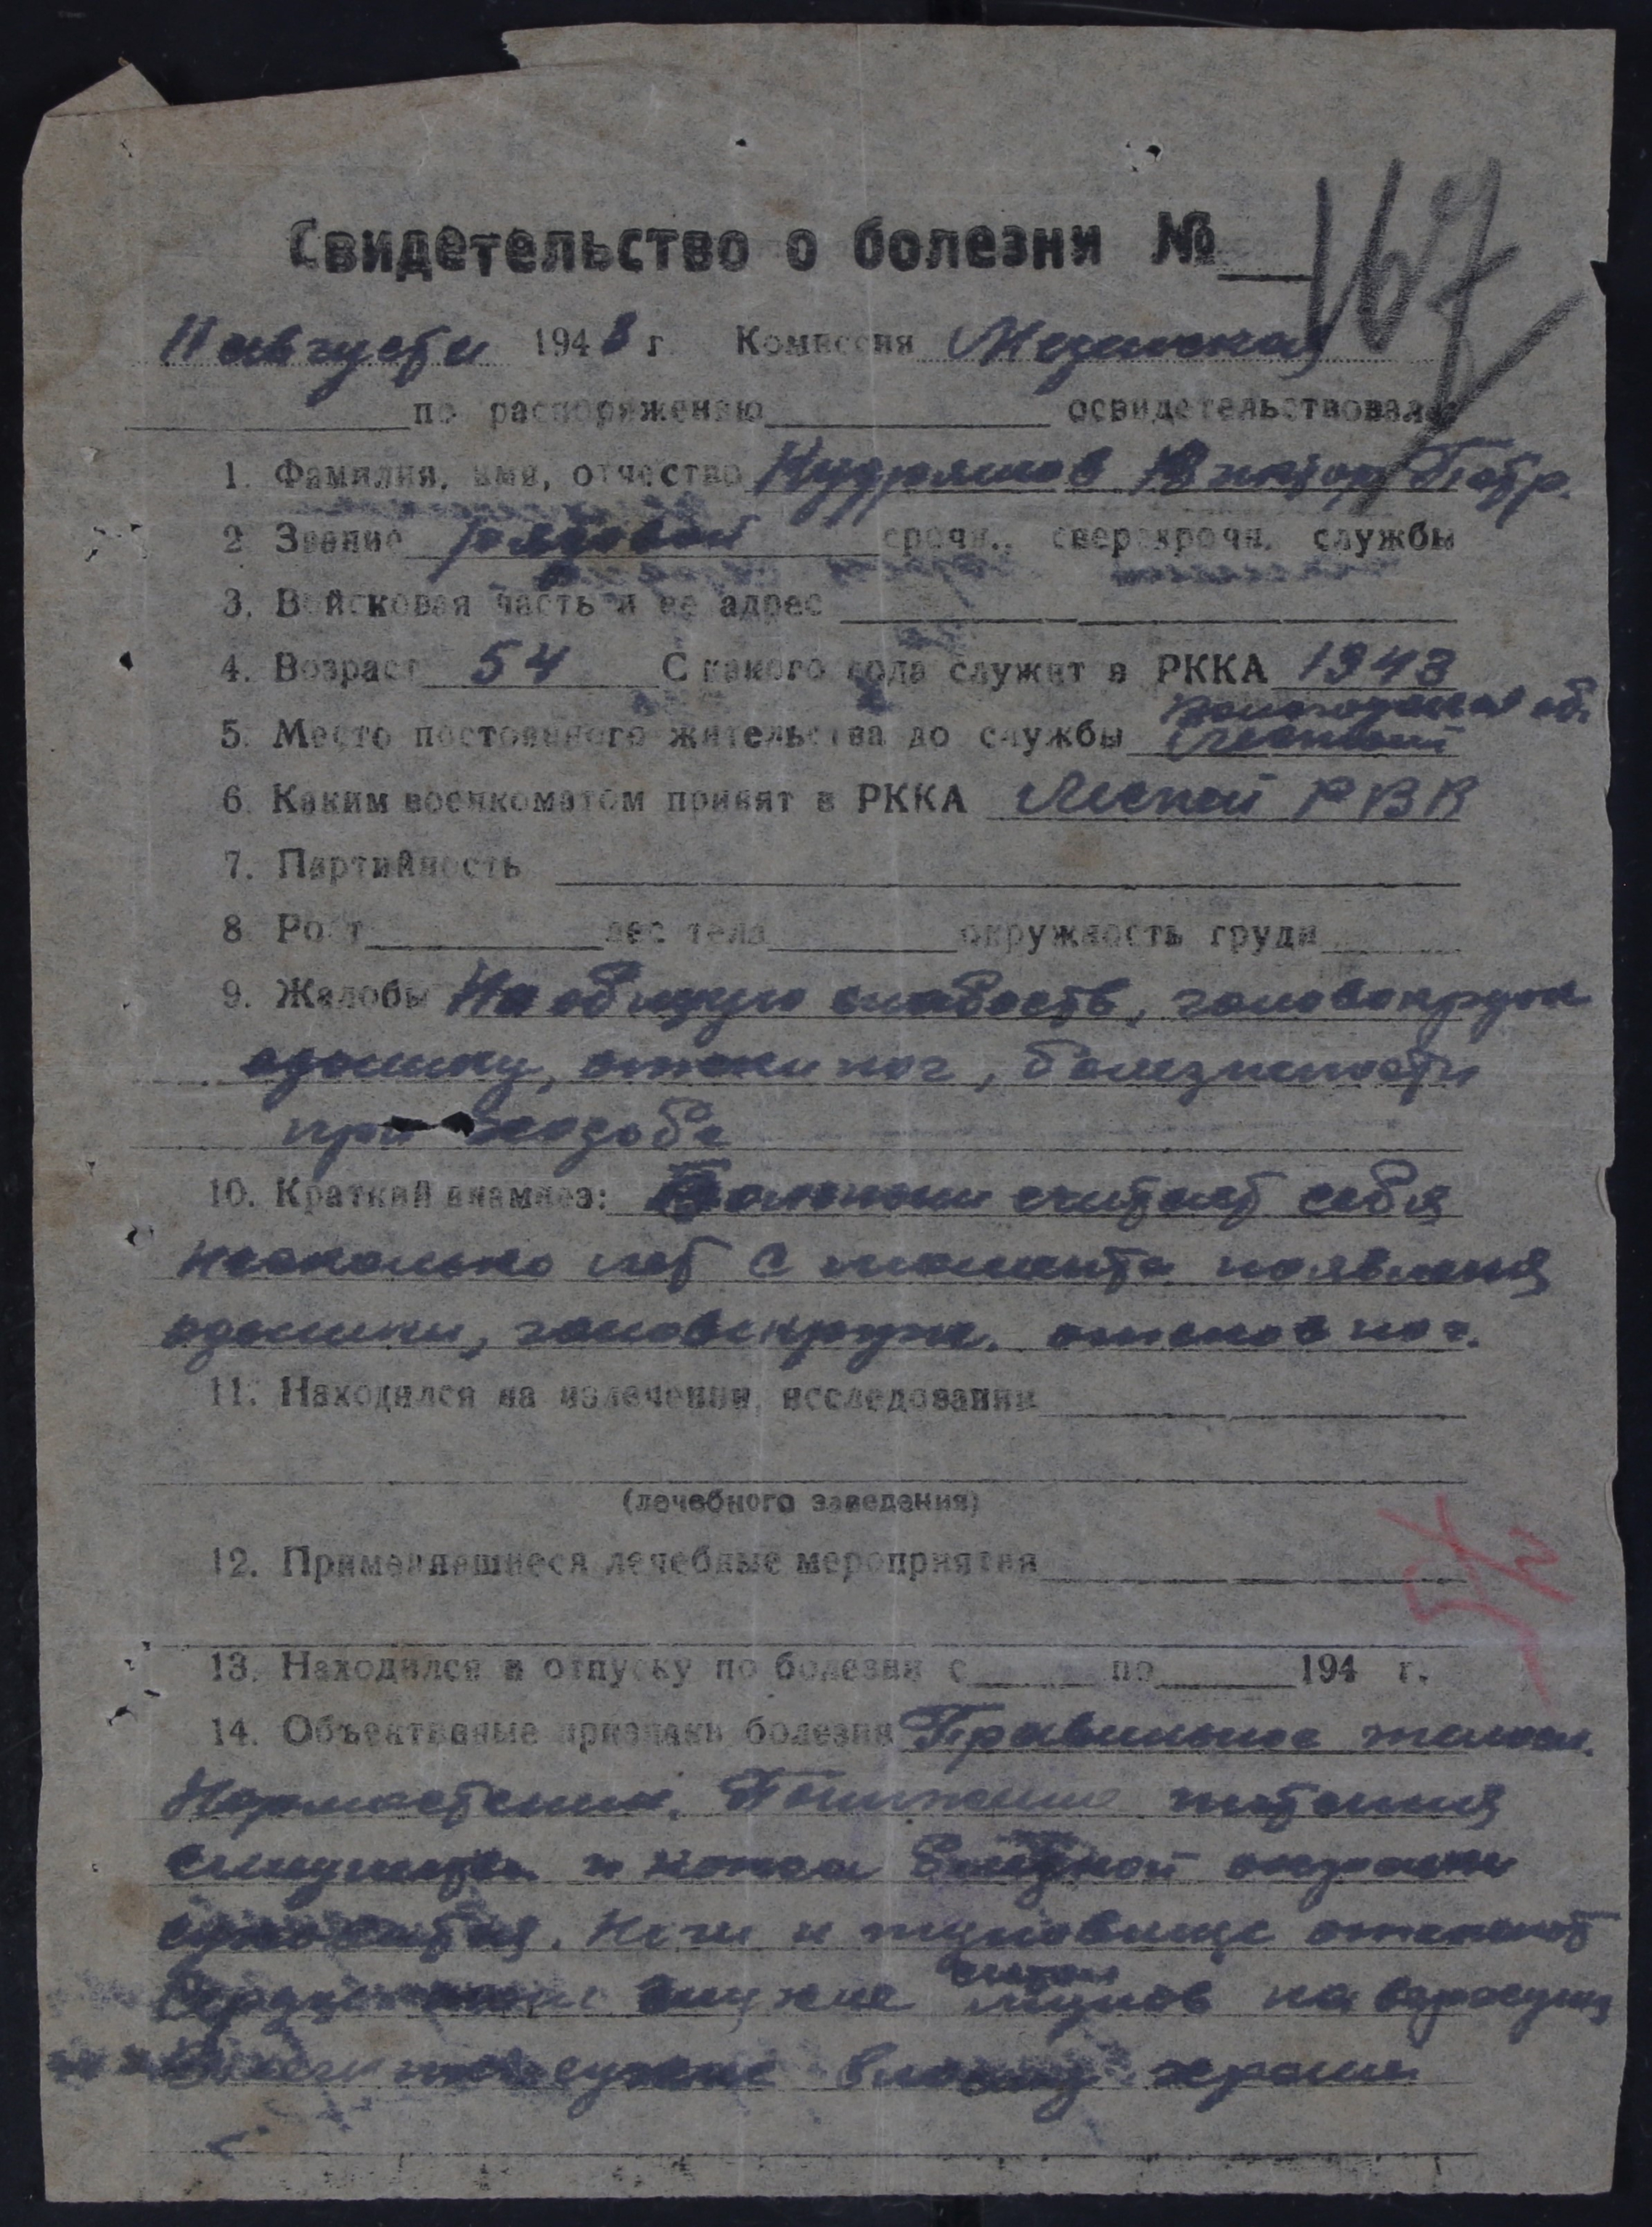 167
Свидетельство о болезни №
11 августа 1943 г. Комиссия
по распоряжению освидетельствовала
1. Фамилия, имя, отчество Кудряшов Виктор Петр.
2. Звание рядовой срочн., сверхсрочн. службы
3. Войсковая часть и ее адрес
4. Возраст 54 С какого года служит в РККА 1943
Вологодская об.
5. Место постоянного жительства до службы
6. Каким военкоматом принят в РККА РВК
7. Партийность
8. Рост вес тела окружность груди
9. Жалобы На общую слабость, головокруж
одышку, отеки ног, болезненности
при ходьбе
10. Краткий анамнез: Больным считает себя
несколько лет с момента появления
одышки, головокруж. отеков ног.
11. Находился на излечении, исследовании
(лечебного заведения)
12. Применявшиеся лечебные мероприятия
13. Находился в отпуску по болезни с по 194 г.
14. Объективные признаки болезни Правильное телосл.
Понижение питания
и кожа бледной окраски
Ноги и туловище
на верхуш
хрипы